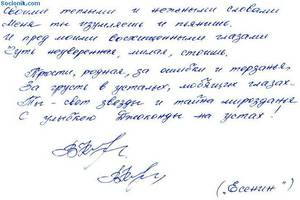 Socionik.com
Своими теплыми и нежными словами
Меня ты изумляешь и пьянишь.
И пред моими восхищенными глазами
Чуть неуверенная, милая, стоишь.
Прости, родная, за ошибки и терзанья,
За грусть в усталых, любящих глазах.
Ты - свет звезды и тайна мирозданья
С улыбкою Джоконды на устах!
("Есенин")